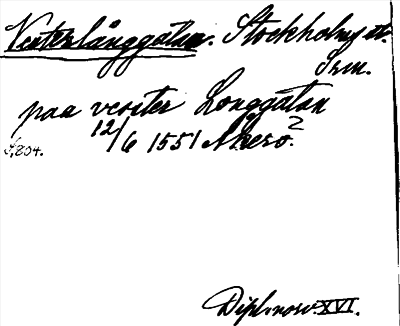 Vesterlånggatan. Stockholms st.
Srm.
paa vester Longgatan
12/6 1551 Åkerö.2
S, 804.
Dipl. norv. XVI.